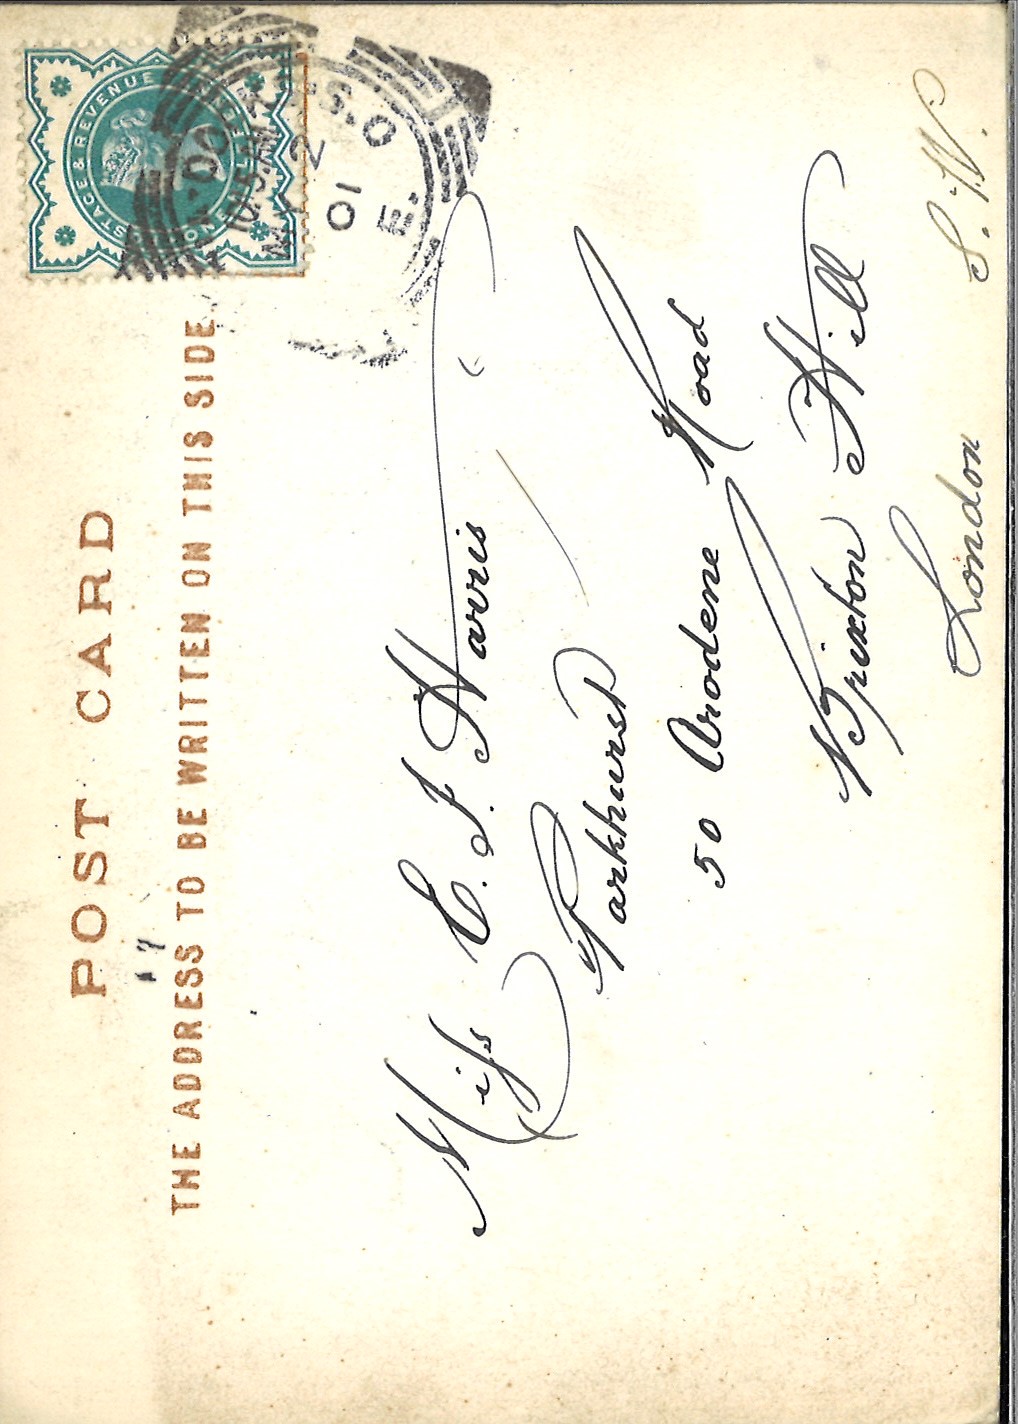 POST CARD
THE ADDRESS TO BE WRITTEN ON THIS SIDE.
POSTAGE & REVENUE
S.O.
10.15AM
2
01
E.
Miss E. J. Harris
Parkhurst
50 Arodene Road
Brixton Hill
London S.W.